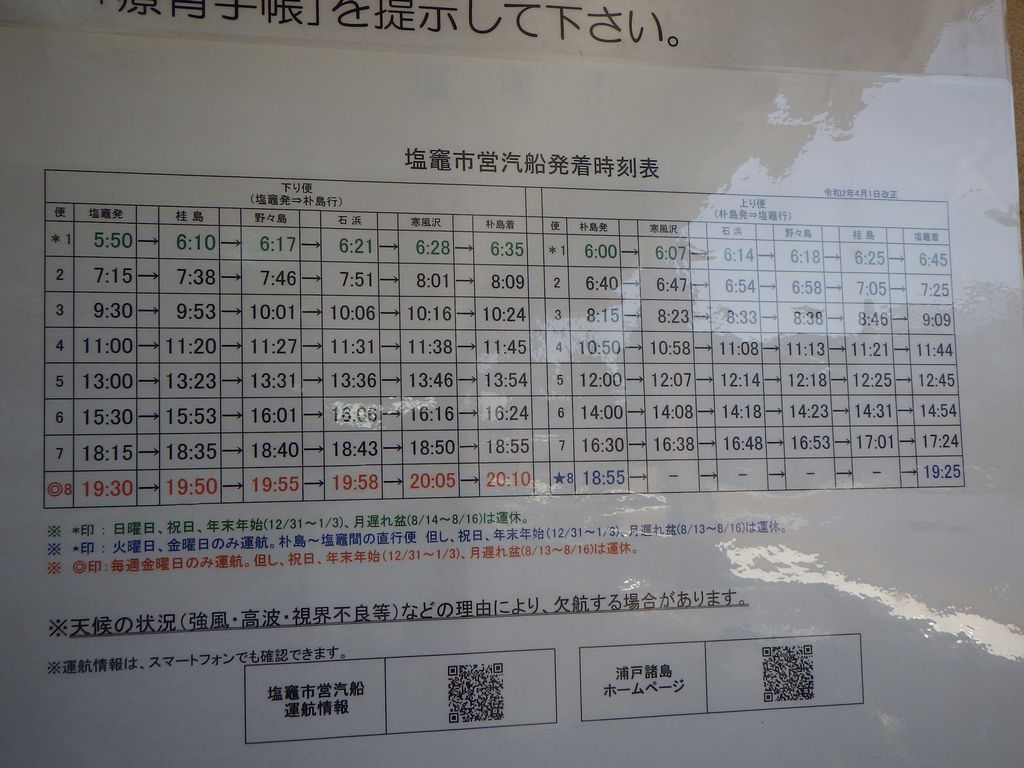 「療育手帳」を提示して下さい。
塩竈市営汽船発着時刻表
令和2年4月1日改正
下り便
(塩竈発⇒朴島行)
上り便
(朴島発⇒塩竈行)
便 塩竈発 桂島 野々島 石浜 寒風沢 朴島着 便 朴島発 寒風沢 石浜 野々島 桂島 塩竈着
*1 5:50→6:10→6:17→6:21→6:28→6:35 *1 6:00→6:07→6:14→6:18→6:25→6:45
2 7:15→7:38→7:46→7:51→8:01→8:09 2 6:40→6:47→6:54→6:58→7:05→7:25
3 9:30→9:53→10:01→10:06→10:16→10:24 3 8:15→8:23→8:33→8:38→8:46→9:09
4 11:00→11:20→11:27→11:31→11:38→11:45 4 10:50→10:58→11:08→11:13→11:21→11:44
5 13:00→13:23→13:31→13:36→13:46→13:54 5 12:00→12:07→12:14→12:18→12:25→12:45
6 15:30→15:53→16:01→16:06→16:16→16:24 6 14:00→14:08→14:18→14:23→14:31→14:54
7 18:15→18:35→18:40→18:43→18:50→18:55 7 16:30→16:38→16:48→16:53→17:01→17:24
◎8 19:30→19:50→19:55→19:58→20:05→20:10 ★8 18:55→－→－→－→－→19:25
※ *印：日曜日、祝日、年末年始(12/31～1/3)、月遅れ盆(8/14～8/16)は運休。
※ ★印：火曜日、金曜日のみ運航。朴島～塩竈間の直行便 但し、祝日、年末年始(12/31～1/3)、月遅れ盆(8/13～8/16)は運休。
※ ◎印：毎週金曜日のみ運航。但し、祝日、年末年始(12/31～1/3)、月遅れ盆(8/13～8/16)は運休。
※天候の状況(強風・高波・視界不良等)などの理由により、欠航する場合があります。
※運航情報は、スマートフォンでも確認できます。
塩竈市営汽船
運航情報
浦戸諸島
ホームページ